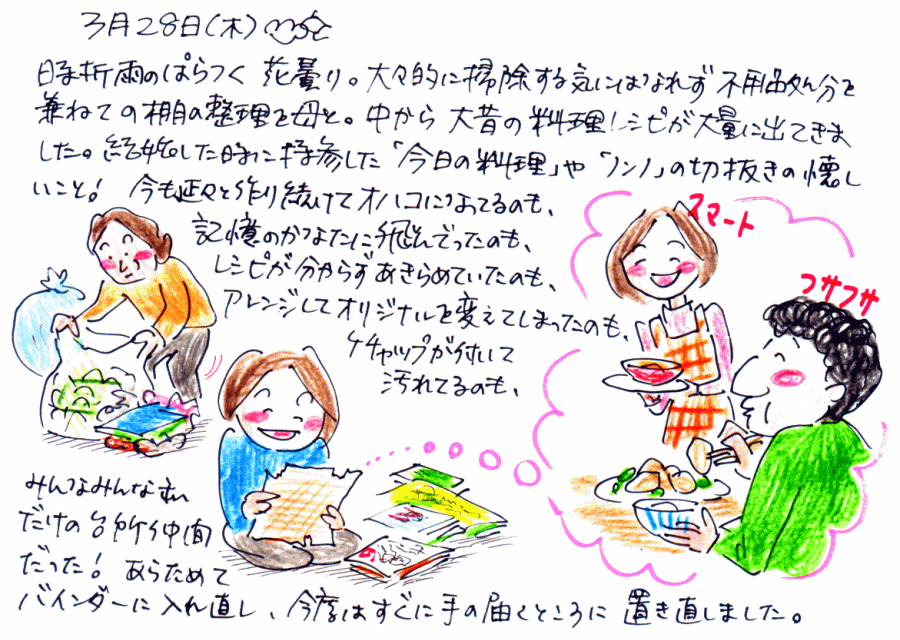 3月28日(木)
時折雨のぱらつく花曇り。大々的に掃除する気にはなれず不用品処分を
兼ねての棚の整理を母と。中から大昔の料理レシピが大量に出てきま
した。結婚した時に持参した「今日の料理」や「ノンノ」の切抜きの懐し
いこと! 今も延々と作り続けてオハコになってるのも、
記憶のかなたに飛んでったのも、
レシピが分からずあきらめていたのも、
アレンジしてオリジナルを変えてしまったのも、
ケチャップが付いて
汚れてるのも、
スマート
フサフサ
みんなみんな私
だけの台所仲間
だった! あらためて
バインダーに入れ直し、今度はすぐに手の届くところに置き直しました。